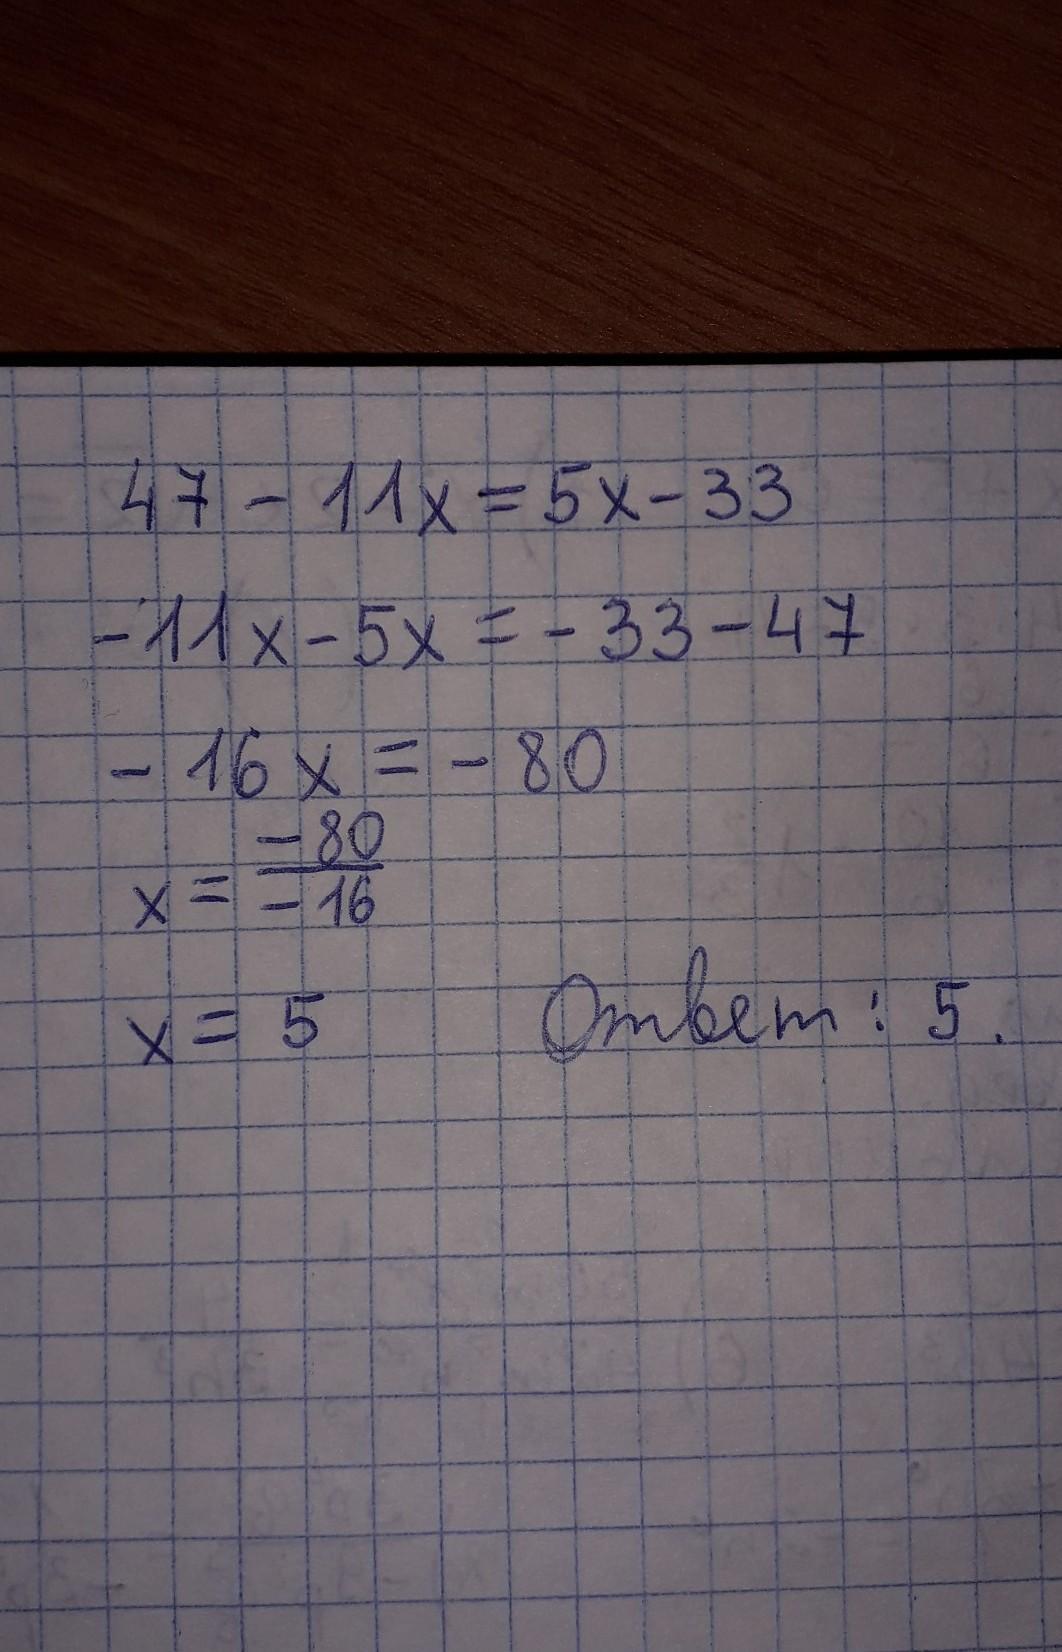 47 - 11x = 5x - 33
-11x - 5x = -33 - 47
-16x = -80
x = -80/-16
x = 5 Ответ: 5.